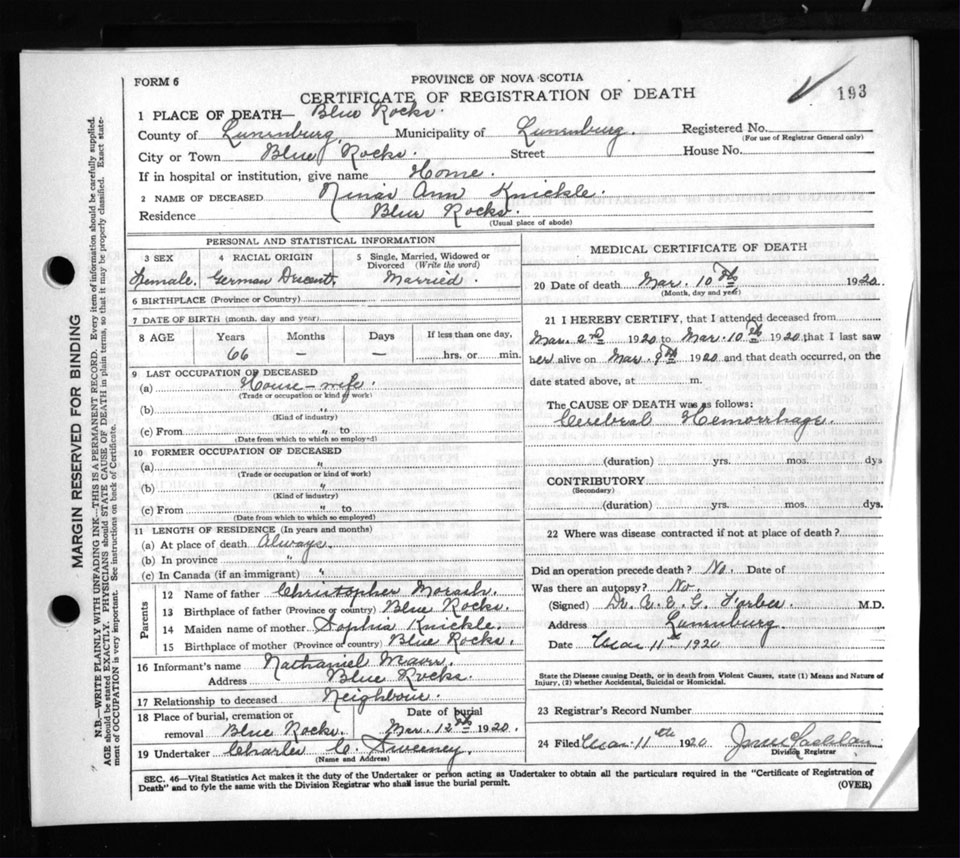 FORM 6
PROVINCE OF NOVA SCOTIA
193
CERTIFICATE OF REGISTRATION OF DEATH
1 PLACE OF DEATH— Blue Rocks.
County of Lunenburg Municipality of Lunenburg. Registered No.
(For use of Registrar General only)
City or Town Blue Rocks. Street House No.
If in hospital or institution, give name Home.
2 NAME OF DECEASED Ann Knickle.
Residence Blue Rocks.
(Usual place of abode)
PERSONAL AND STATISTICAL INFORMATION
3 SEX 4 RACIAL ORIGIN 5 Single, Married, Widowed or Divorced (Write the word)
Female. German Decent. Married.
6 BIRTHPLACE (Province or Country)
7 DATE OF BIRTH (month, day and year)
8 AGE Years Months Days If less than one day,
66 — — hrs. or min.
9 LAST OCCUPATION OF DECEASED
(a) House-wife.
(Trade or occupation or kind of work)
(b) "
(Kind of industry)
(c) From " to
(Date from which to which so employed)
10 FORMER OCCUPATION OF DECEASED
(a) "
(Trade or occupation or kind of work)
(b) "
(Kind of industry)
(c) From " to
(Date from which to which so employed)
11 LENGTH OF RESIDENCE (In years and months)
(a) At place of death Always.
(b) In province "
(c) In Canada (if an immigrant) "
Parents
12 Name of father Christopher Morash.
13 Birthplace of father (Province or country) Blue Rocks.
14 Maiden name of mother Sophia Knickle.
15 Birthplace of mother (Province or country) Blue Rocks.
16 Informant's name Nathaniel
Address Blue Rocks.
17 Relationship to deceased Neighbour.
18 Place of burial, cremation or removal Blue Rocks. Date of burial Mar. 12th 1920.
19 Undertaker Charles C. Sweeney.
(Name and Address)
MEDICAL CERTIFICATE OF DEATH
20 Date of death Mar. 10th 1920.
(Month, day and year)
21 I HEREBY CERTIFY, that I attended deceased from
Mar. 2nd 1920 to Mar. 10th 1920 that I last saw
her alive on Mar. 9th 1920 and that death occurred, on the
date stated above, at m.
The CAUSE OF DEATH was as follows:
Cerebral Hemorrhage.
(duration) yrs. mos. dys
CONTRIBUTORY
(Secondary)
(duration) yrs. mos. dys.
22 Where was disease contracted if not at place of death?
Did an operation precede death? No. Date of
Was there an autopsy? No.
(Signed) Dr. A. E. G. Forbes. M.D.
Address Lunenburg.
Date Mar 11th 1920
State the Disease causing Death, or in death from Violent Causes, state (1) Means and Nature of
Injury, (2) whether Accidental, Suicidal or Homicidal.
23 Registrar's Record Number
24 Filed Mar. 11th 1920
Division Registrar
SEC. 46—Vital Statistics Act makes it the duty of the Undertaker or person acting as Undertaker to obtain all the particulars required in the "Certificate of Registration of
Death" and to fyle same with the Division Registrar who shall issue the burial permit.
(OVER)
MARGIN RESERVED FOR BINDING
N.B.—WRITE PLAINLY WITH UNFADING INK—THIS IS A PERMANENT RECORD. Every item of information should be carefully supplied.
AGE should be stated EXACTLY. PHYSICIANS should STATE CAUSE OF DEATH in plain terms, so that it may be properly classified. Exact state-
ment of OCCUPATION is very important. See instructions on back of Certificate.